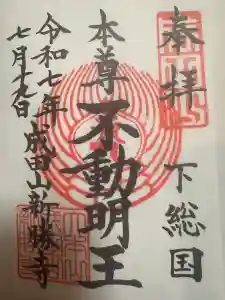 奉拝
下総国
本尊
不動明王
令和七年
成田山新勝寺
七月十九日